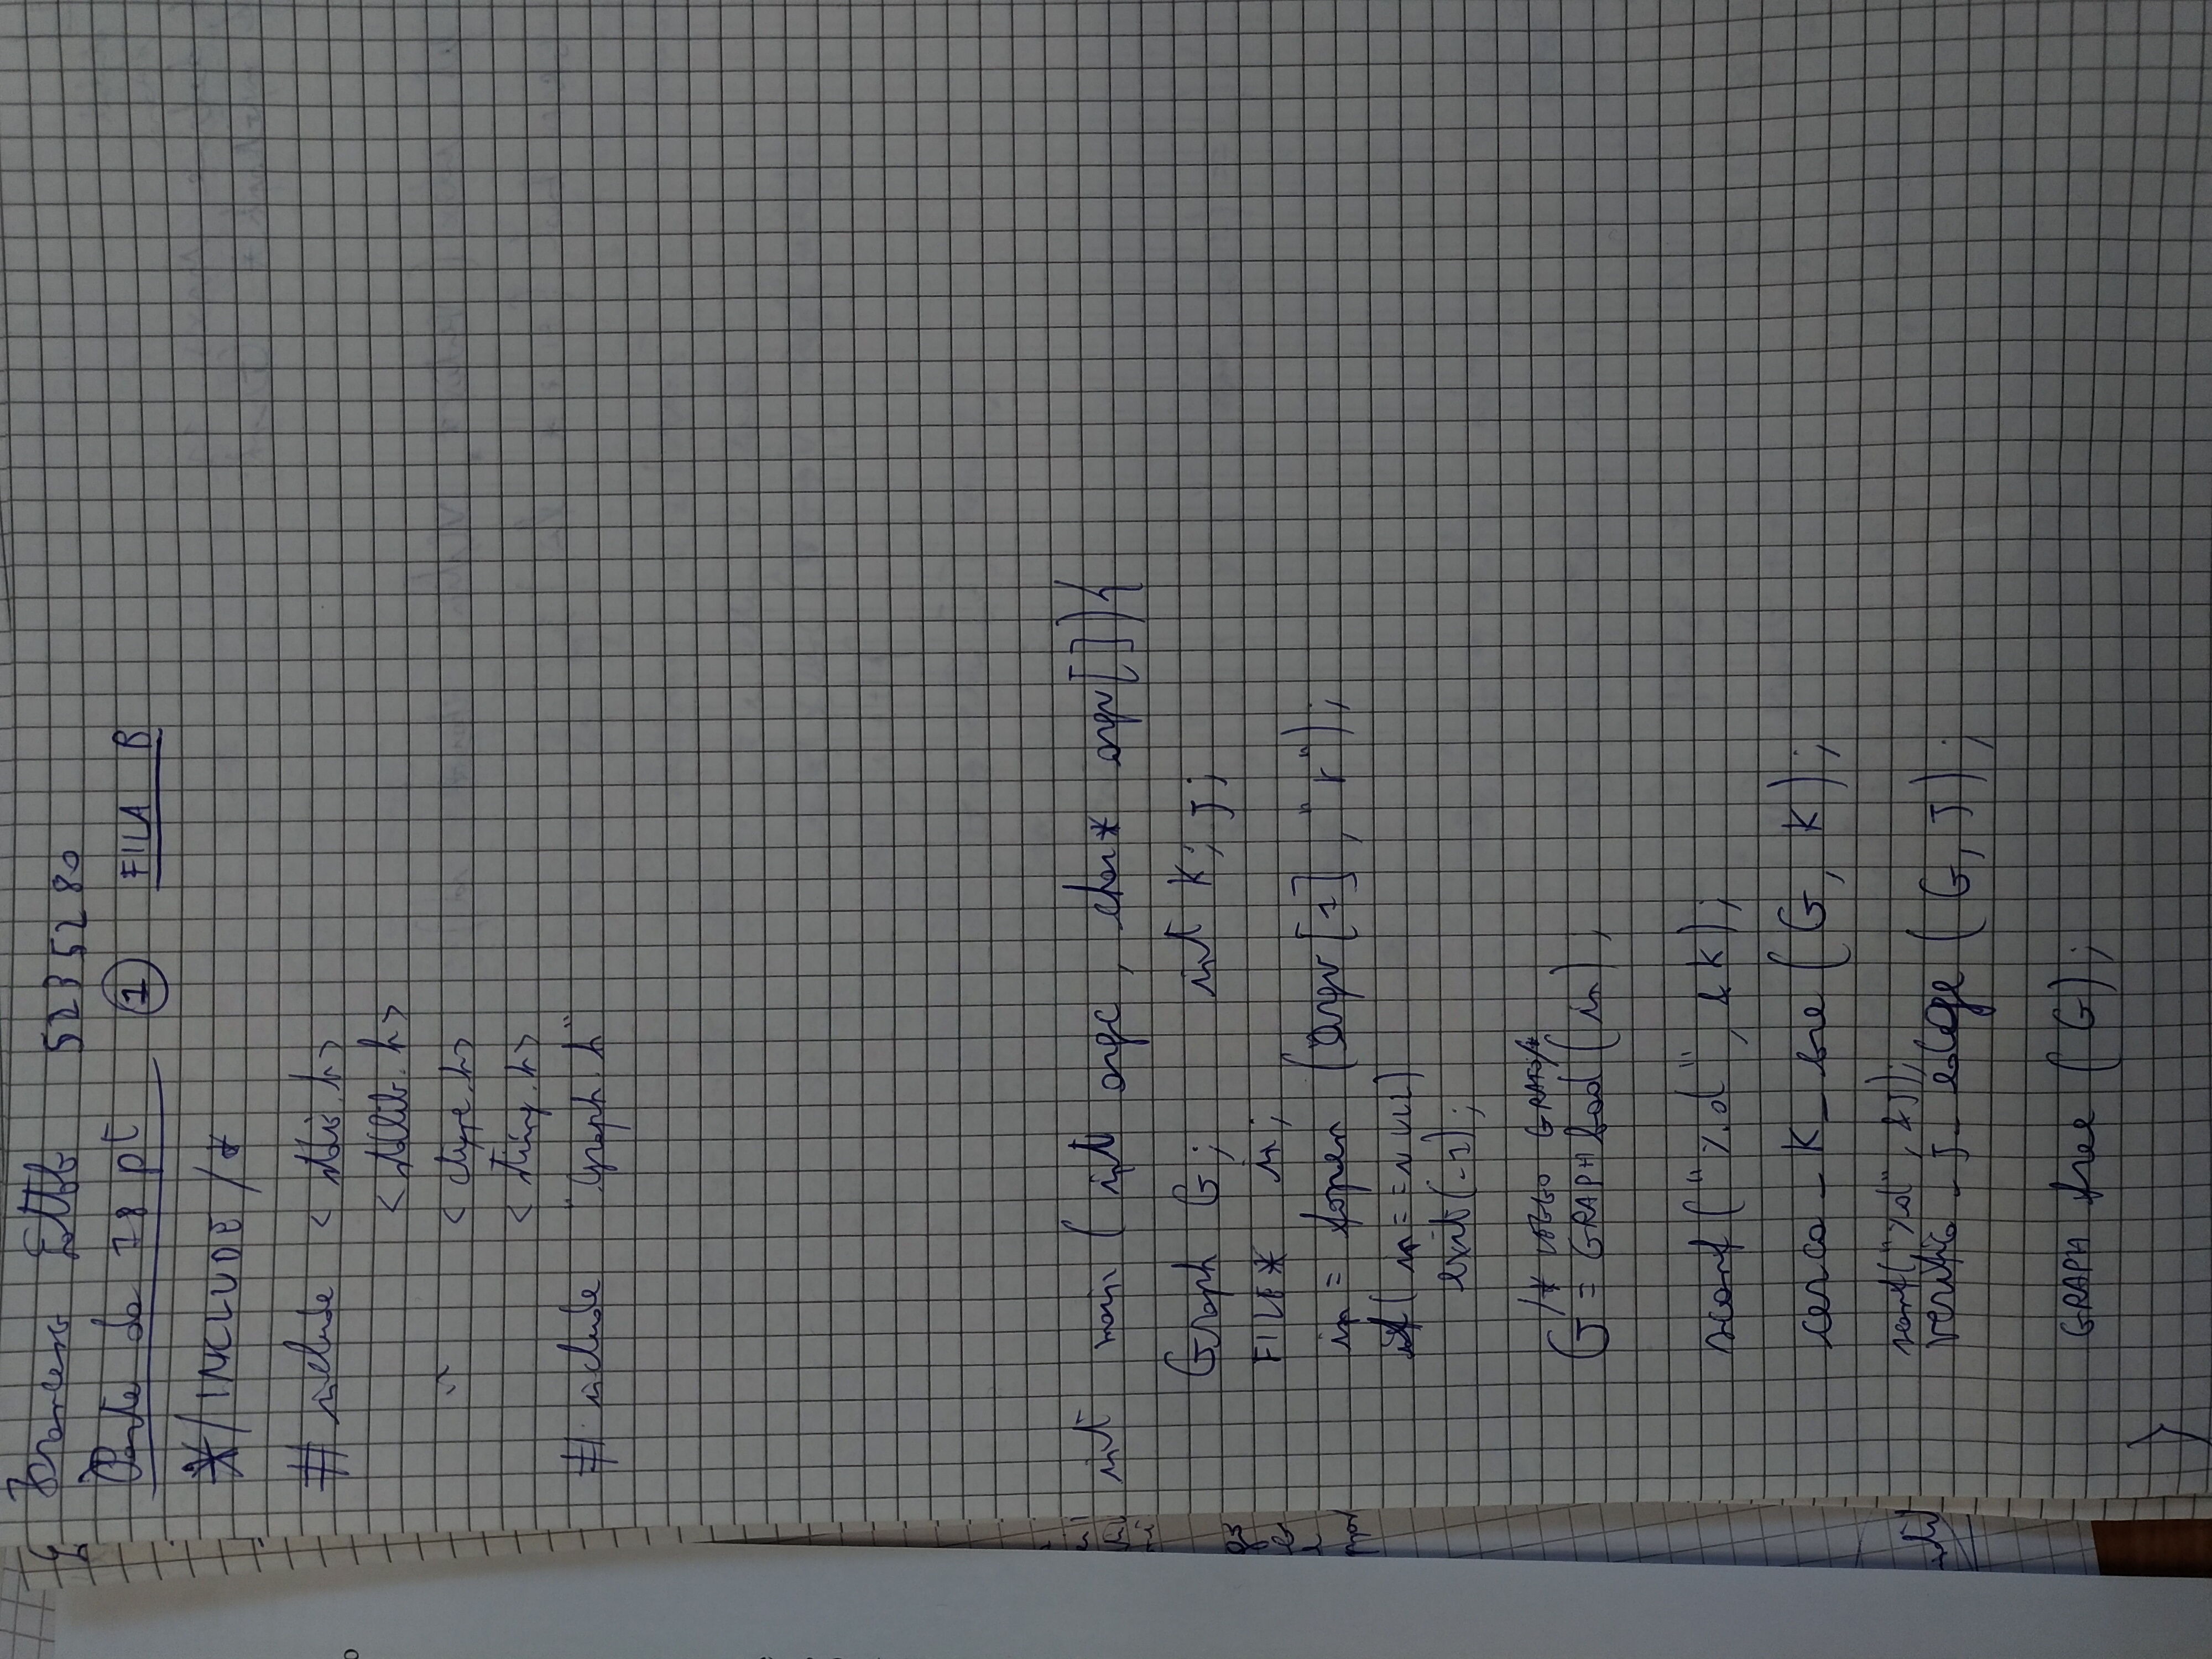 Francesco 5235280
Parte da 18 pt 1 FILA B
*/ INCLUDE /*
# include < stdio.h>
< stdlib.h>
" < ctype.h>
< string.h>
# include "Graph.h"
int main ( int argc , char* argv[]){
Graph G; int K; J;
FILE* in;
in = fopen (argv[1] , "r");
if( in == NULL)
exit(-1);
/* LEGGO GRAFO/*
G = GRAPH load (in) ;
scanf( "%d" , &K);
cerca_K_ ( G, K);
scanf("%d" , &J);
verifica_J_edge ( G, J);
GRAPH free ( G);
}